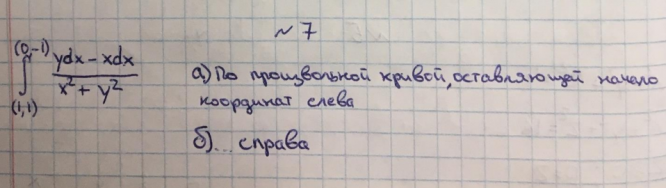 №7
(0,-1)
∫ (ydx - xdx)/(x² + y²)
(1,1)
а) По произвольной кривой, оставляющей начало
координат слева
б)... справа